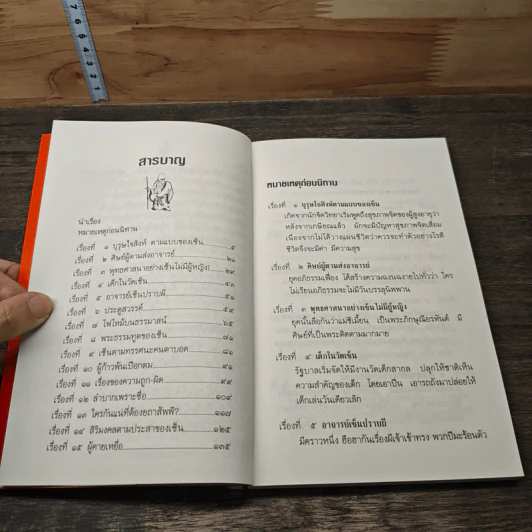 สารบาญ
นำเรื่อง
หมายเหตุก่อนนิทาน
เรื่องที่ ๑ บุรุษใจสิงห์ ตามแบบของเซ็น ๕
เรื่องที่ ๒ ศิษย์ผู้ตามส่งอาจารย์
เรื่องที่ ๓ พุทธศาสนาอย่างเซ็นไม่มีผู้หญิง!
เรื่องที่ ๔ เด็กในวัดเซ็น
เรื่องที่ ๕ อาจารย์เซ็นปราบผี
เรื่องที่ ๖ ประตูสวรรค์
เรื่องที่ ๗ ไฟไหม้บนธรรมาสน์ ๖๕
เรื่องที่ ๘ พระธรรมทูตของเซ็น
เรื่องที่ ๙ เซ็นตามทรรศนะคนตาบอด
เรื่องที่ ๑๐ ผู้ก้าวพ้นเปือกตม
เรื่องที่ ๑๑ เรื่องของความถูก-ผิด ๙๙
เรื่องที่ ๑๒ ลำบากเพราะชื่อ
เรื่องที่ ๑๓ ใครกันแน่ที่ต้องยถาสัพพี?
เรื่องที่ ๑๔ สิริมงคลตามประสาของเซ็น ๑๒๕
เรื่องที่ ๑๕ ผู้คายเหยื่อ ๑๓๕
หมายเหตุก่อนนิทาน
เรื่องที่ ๑ บุรุษใจสิงห์ตามแบบของเซ็น
เกิดจากนักจิตวิทยาเริ่มพูดถึงสุขภาพจิตของผู้สูงอายุว่า
หลังจากเกษียณแล้ว มักจะมีปัญหาสุขภาพจิตเสื่อม
เนื่องจากไม่ได้วางแผนชีวิตว่าควรจะทำตัวอย่างไรดี
ชีวิตจึงจะมีค่า มีความสุข
เรื่องที่ ๒ ศิษย์ผู้ตามส่งอาจารย์
ยุคอภิธรรมเฟื่อง ได้สร้างความฉงนฉงายไปทั่วว่า ใคร
ไม่เรียนอภิธรรมจะไม่มีวันบรรลุนิพพาน
เรื่องที่ ๓ พุทธศาสนาอย่างเซ็นไม่มีผู้หญิง
ยุคนั้นลือกันว่าแม่ชีเมี้ยน เป็นพระภิกษุณีอรหันต์ มี
ศิษย์ที่เป็นพระติดตามมากมาย
เรื่องที่ ๔ เด็กในวัดเซ็น
รัฐบาลเริ่มจัดให้มีงานวัดเด็กสากล ปลุกให้ชาติเห็น
ความสำคัญของเด็ก โดยเอาปืน เอารถถังมาปล่อยให้
เด็กเล่นวันเดียวเลิก
เรื่องที่ ๕ อาจารย์เซ็นปราบผี
มีคราวหนึ่ง ฮือฮากันเรื่องผีเจ้าเข้าทรง พวกปีมะร้อนตัว